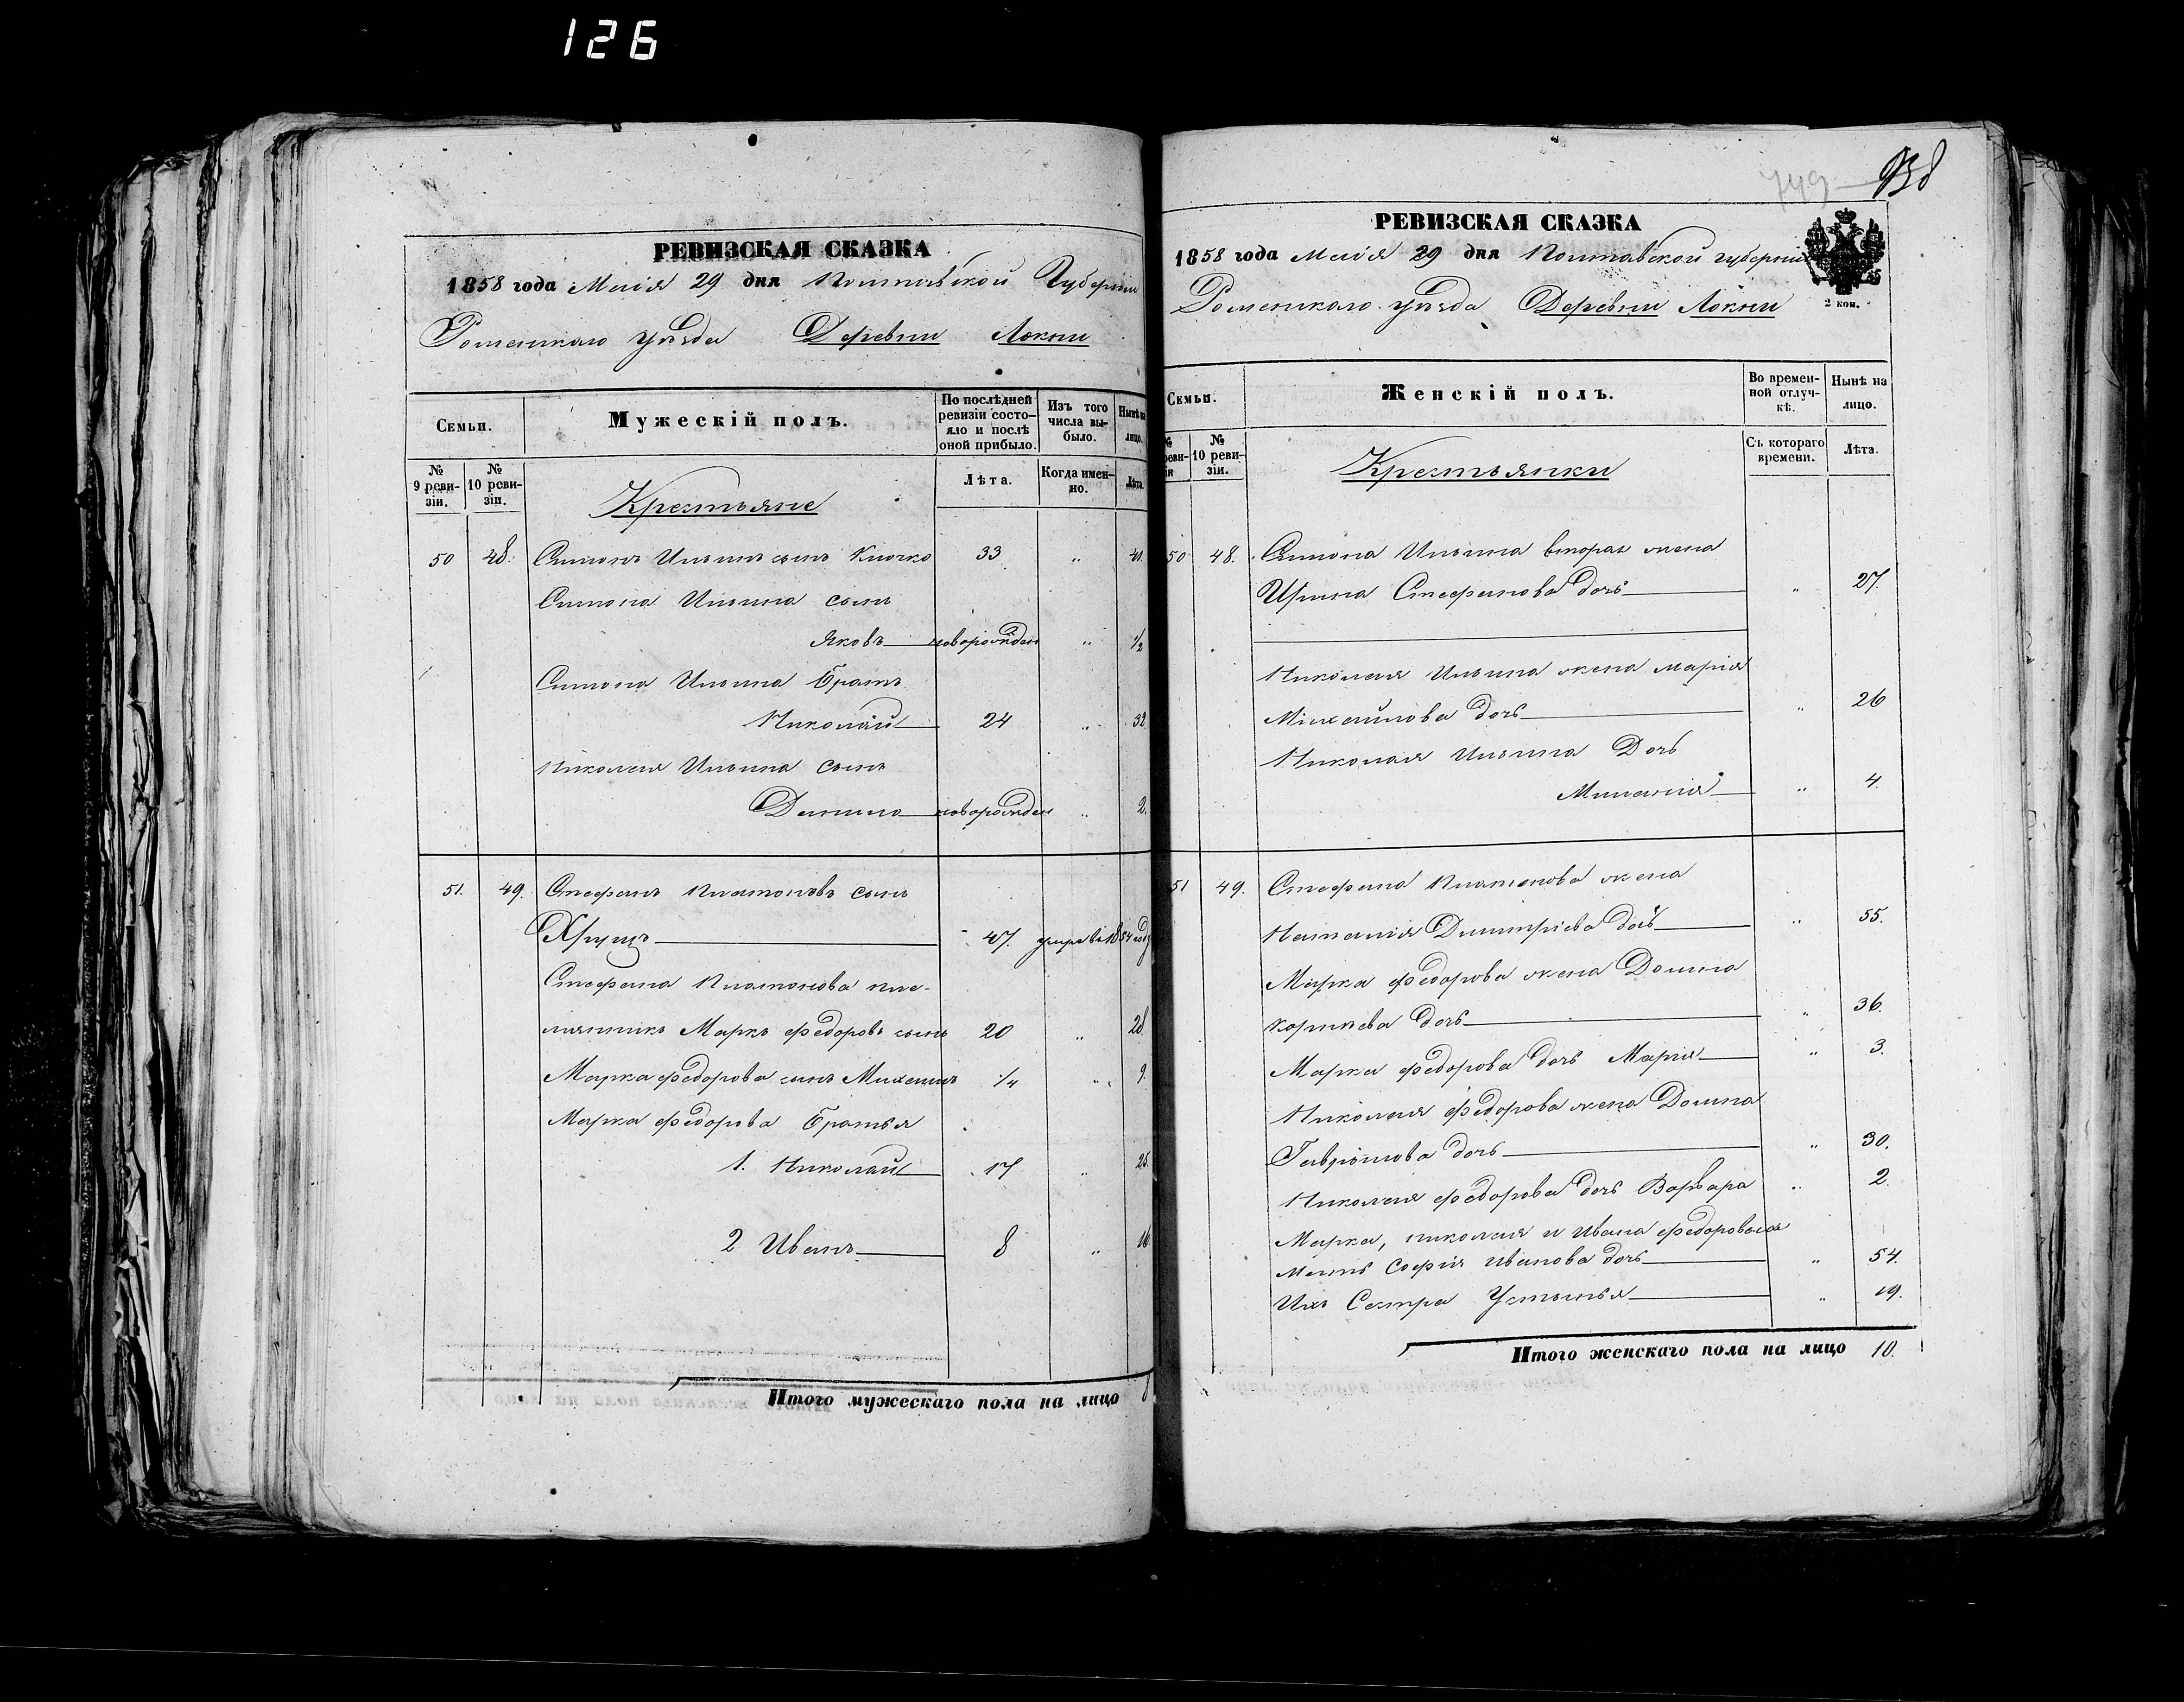 126
РЕВИЗСКАЯ СКАЗКА
1858 года Маія 29 дня Полтавской Губерніи
Роменскаго уѣзда Деревни Локни
Семьи.
Мужескій полъ.
По послѣдней ревизіи состояло и послѣ оной прибыло.
Изъ того числа выбыло.
Нынѣ на лицо.
№ 9 ревизіи.
№ 10 ревизіи.
Лѣта.
Когда именно.
Лѣта.
Крестьяне
50 48. Симонъ Ильинъ сынъ Клочко 33 „ 41.
Симона Ильина сынъ
Яковъ новорожден „ 1/2
Симона Ильина братъ
Николай 24 „ 32
Николая Ильина сынъ
Данило новорожден „ 2.
51. 49. Стефанъ Платоновъ сынъ
Хрущъ 47. умре въ 1854 году
Стефана Платонова пле-
мянникъ Маркъ Федоровъ сынъ 20 „ 28.
Марка Федорова сынъ Михаилъ 1/4 „ 9.
Марка Федорова братья
1. Николай 17 „ 25.
2 Иванъ 8 „ 16.
Итого мужескаго пола на лицо 8
749
РЕВИЗСКАЯ СКАЗКА
1858 года Маія 29 дня Полтавской губерніи
Роменскаго уѣзда Деревни Локни
2 коп.
Семьи.
Женскій полъ.
Во временной отлучкѣ.
Нынѣ на лицо.
№ ревизіи
№ 10 ревизіи.
Съ котораго времени.
Лѣта.
Крестьянки
50 48. Симона Ильина вторая жена
Ирина Стефанова дочь „ 27.
Николая Ильина жена Марія
Михайлова дочь „ 26
Николая Ильина Дочь
Миланія „ 4.
51 49. Стефана Платонова жена
Наталія Димитріева дочь „ 55.
Марка Федорова жена Домна
Корнѣева дочь „ 36.
Марка Федорова дочь Марія „ 3.
Николая Федорова жена Домна
Гаврилова дочь „ 30.
Николая Федорова дочь Варвара „ 2.
Марка, Николая и Ивана Федоровыхъ
мать Софія Иванова дочь „ 54.
Ихъ Сестра Устинья „ 19.
Итого женскаго пола на лицо 10.